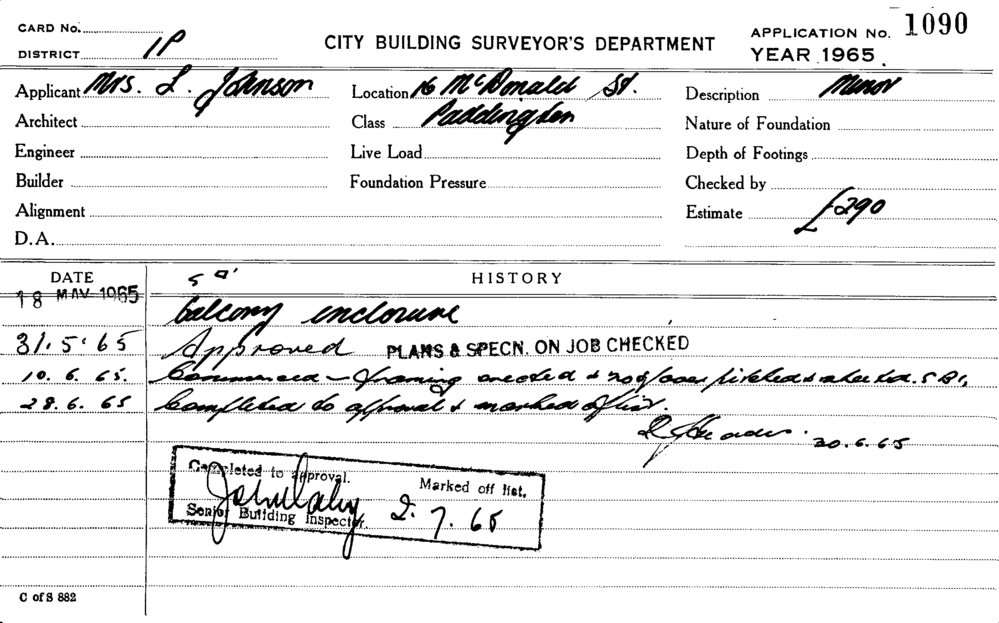 CARD No.
DISTRICT 1P
CITY BUILDING SURVEYOR'S DEPARTMENT
APPLICATION No. 1090
YEAR 1965.
Applicant Mrs. L. Johnson
Location 16 McDonald St.
Description Minor
Architect
Class Paddington
Nature of Foundation
Engineer
Live Load
Depth of Footings
Builder
Foundation Pressure
Checked by
Alignment
Estimate £290
D.A.
DATE
HISTORY
18 MAY 1965
balcony enclosure
31.5.65 Approved PLANS & SPECN. ON JOB CHECKED
10.6.65. Commenced - framing erected & roof over pitched &
28.6.65 Completed to approval & marked off list.
30.6.65
Completed to approval.
Marked off list.
Senior Building Inspector.
2.7.65
C of S 882